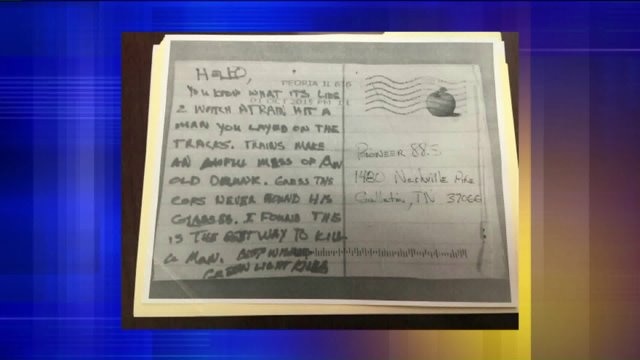 HELLO,
PEORIA IL 616
YOU KNOW WHAT ITS LIKE
01 OCT 2015 PM 1 L
2 WATCH A TRAIN HIT A
MAN YOU LAYED ON THE
TRACKS. TRAINS MAKE
AN AWFUL MESS OF AN
OLD DRUNK. GUESS THE
COPS NEVER FOUND HIS
GLASSES. I FOUND THE
IS THE BEST WAY TO KILL
A MAN. BEST WISHES
GREEN LIGHT KILLER
PIONEER 88.5
1480 Nashville Pike
Gallatin, TN 37066